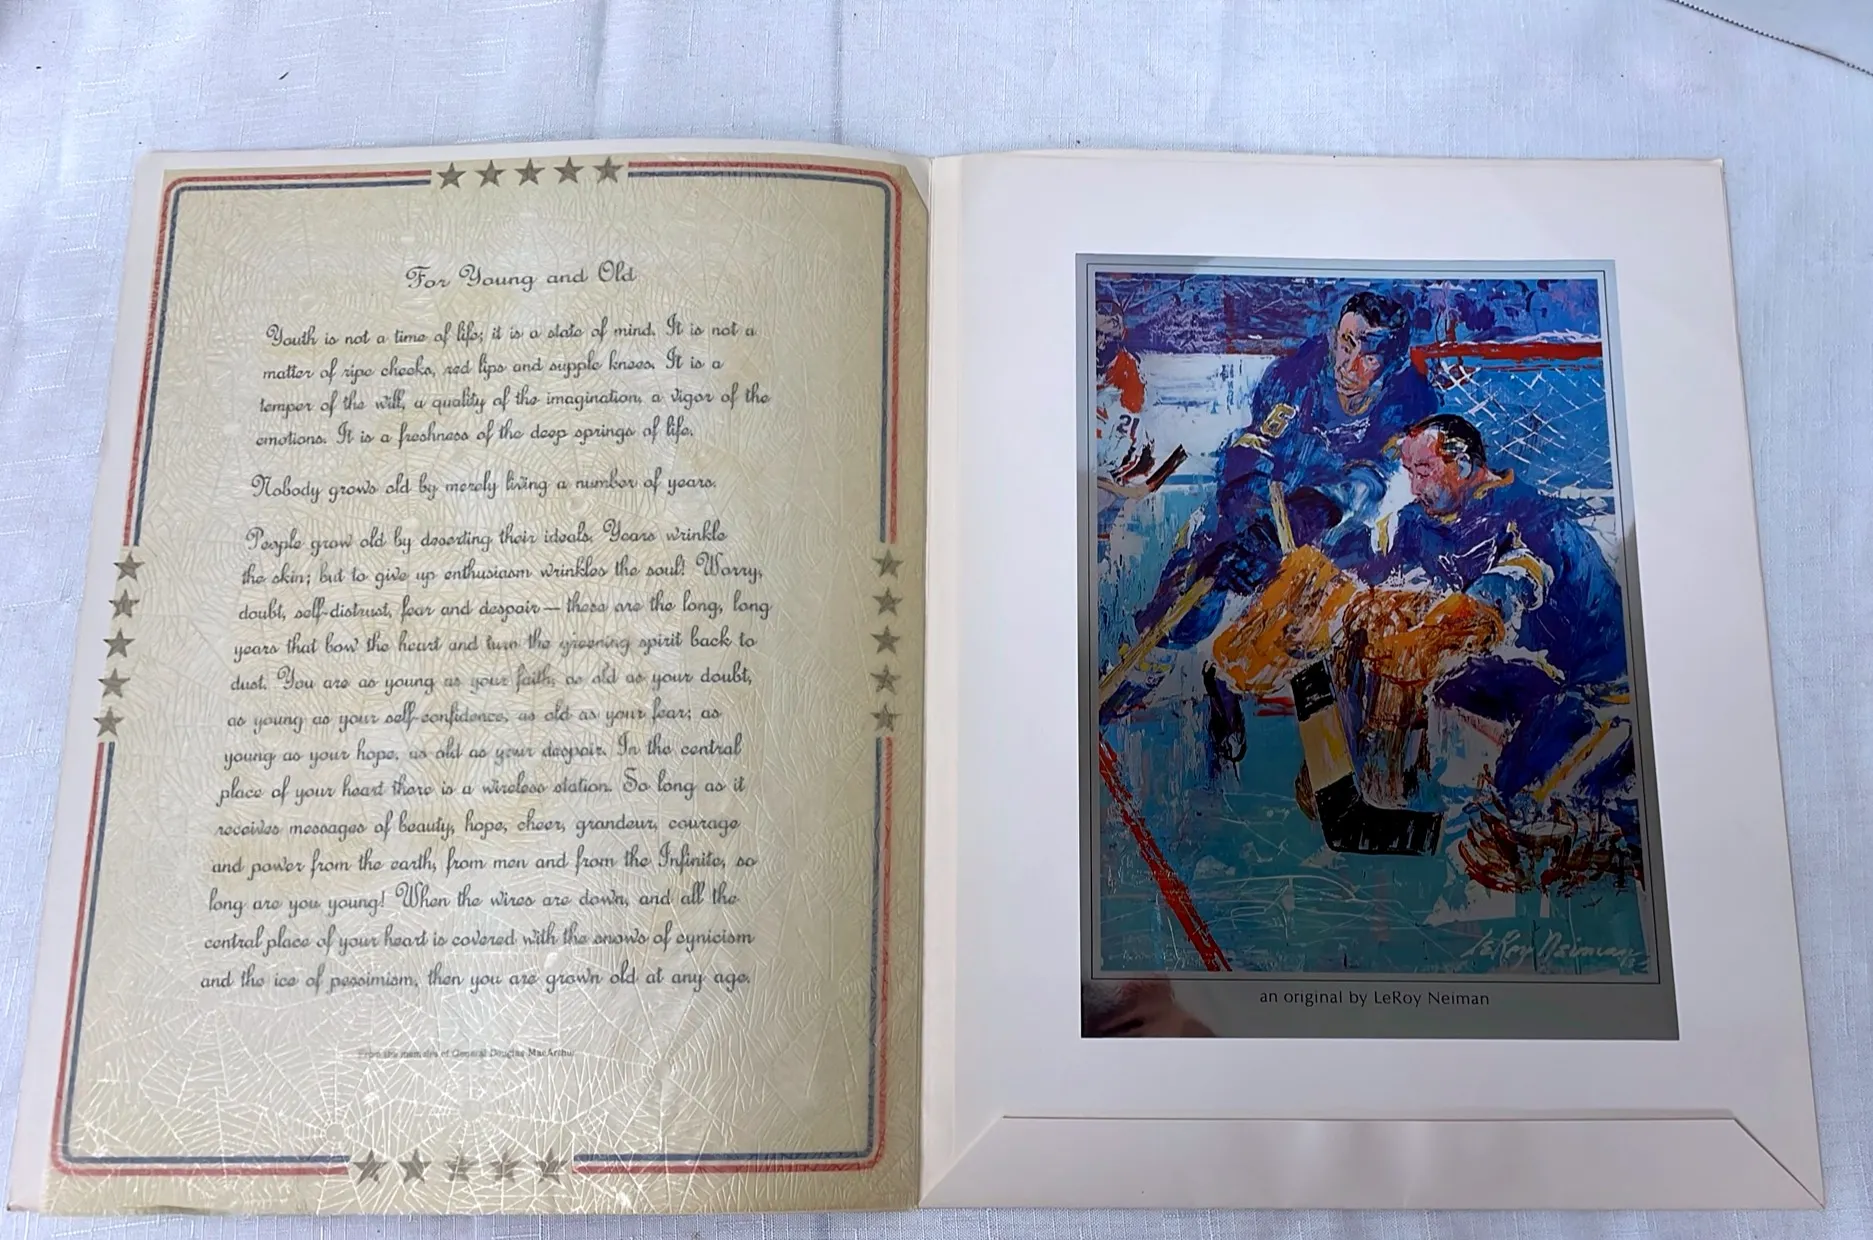 For Young and Old
Youth is not a time of life; it is a state of mind. It is not a
matter of ripe cheeks, red lips and supple knees. It is a
temper of the will, a quality of the imagination, a vigor of the
emotions. It is a freshness of the deep springs of life.
Nobody grows old by merely living a number of years.
People grow old by deserting their ideals. Years wrinkle
the skin; but to give up enthusiasm wrinkles the soul! Worry,
doubt, self-distrust, fear and despair — these are the long, long
years that bow the heart and turn the greening spirit back to
dust. You are as young as your faith, as old as your doubt,
as young as your self-confidence, as old as your fear; as
young as your hope, as old as your despair. In the central
place of your heart there is a wireless station. So long as it
receives messages of beauty, hope, cheer, grandeur, courage
and power from the earth, from men and from the Infinite, so
long are you young! When the wires are down, and all the
central place of your heart is covered with the snows of cynicism
and the ice of pessimism, then you are grown old at any age.
From the memoirs of General Douglas MacArthur
6
21
LeRoy Neiman
an original by LeRoy Neiman